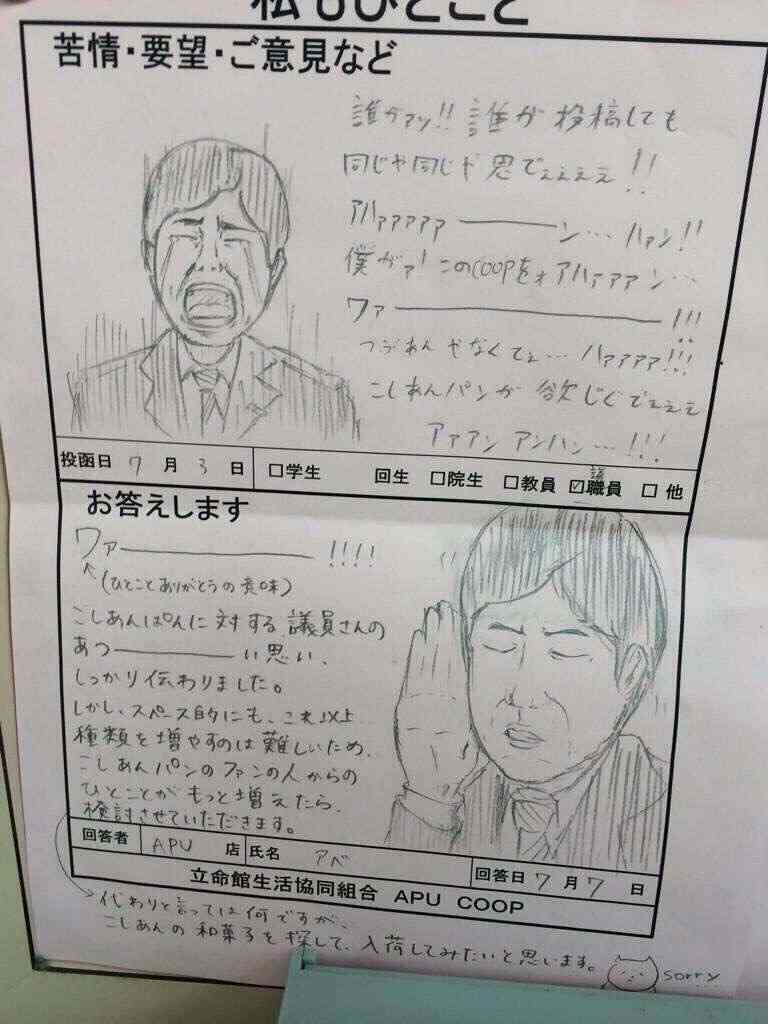 私もひとこと
苦情・要望・ご意見など
誰がァッ!! 誰が投稿しても
同じや同じや思でェェェェ!!
アハァァァァァ――――ン… ハァン!!
僕がァ! このCOOPをォアハァァァン…
ワァ――――――――――!!!
つぶあんやなくてェ… ハァァァァ!!!
こしあんパンが欲じぐでェェェ
アァアン アンハン…!!!
投函日 7 月 3 日 □学生 回生 □院生 □教員 ☑議職員 □他
お答えします
ワァ――――――――――!!!!
(ひとことありがとうの意味)
こしあんぱんに対する議員さんの
あつ――――――い思い、
しっかり伝わりました。
しかし、スペース的にも、これ以上
種類を増やすのは難しいため、
こしあんパンのファンの人からの
ひとことがもっと増えたら、
検討させていただきます。
回答者 APU 店 氏名 アベ 回答日 7 月 7 日
立命館生活協同組合 APU COOP
代わりと言っては何ですが、
こしあんの和菓子を探して、入荷してみたいと思います。
sorry